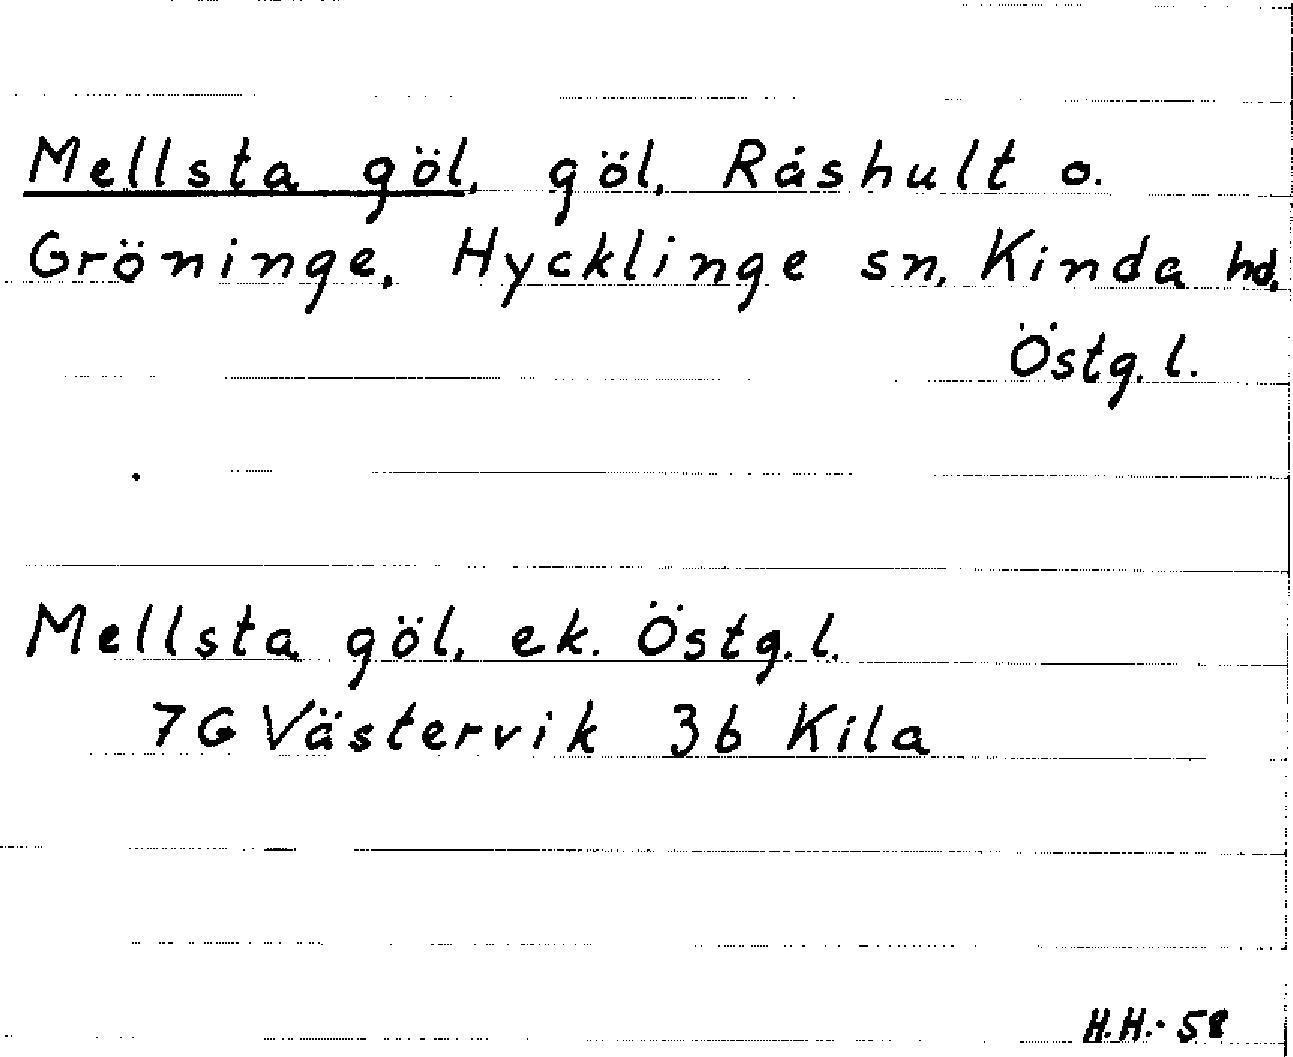 Mellsta göl, göl, Råshult o.
Gröninge, Hycklinge sn, Kinda hd,
Östg. l.
Mellsta göl, ek. Östg. l.
7G Västervik 3b Kila
H.H.-58